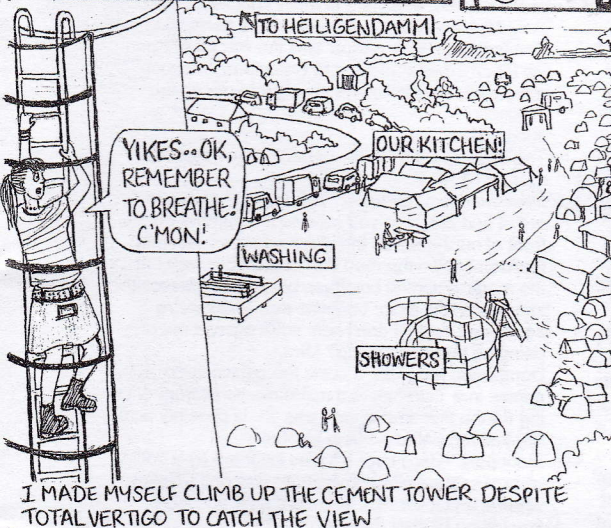 TO HEILIGENDAMM
YIKES..OK,
REMEMBER
TO BREATHE!
C'MON!
OUR KITCHEN!
WASHING
SHOWERS
I MADE MYSELF CLIMB UP THE CEMENT TOWER DESPITE
TOTAL VERTIGO TO CATCH THE VIEW